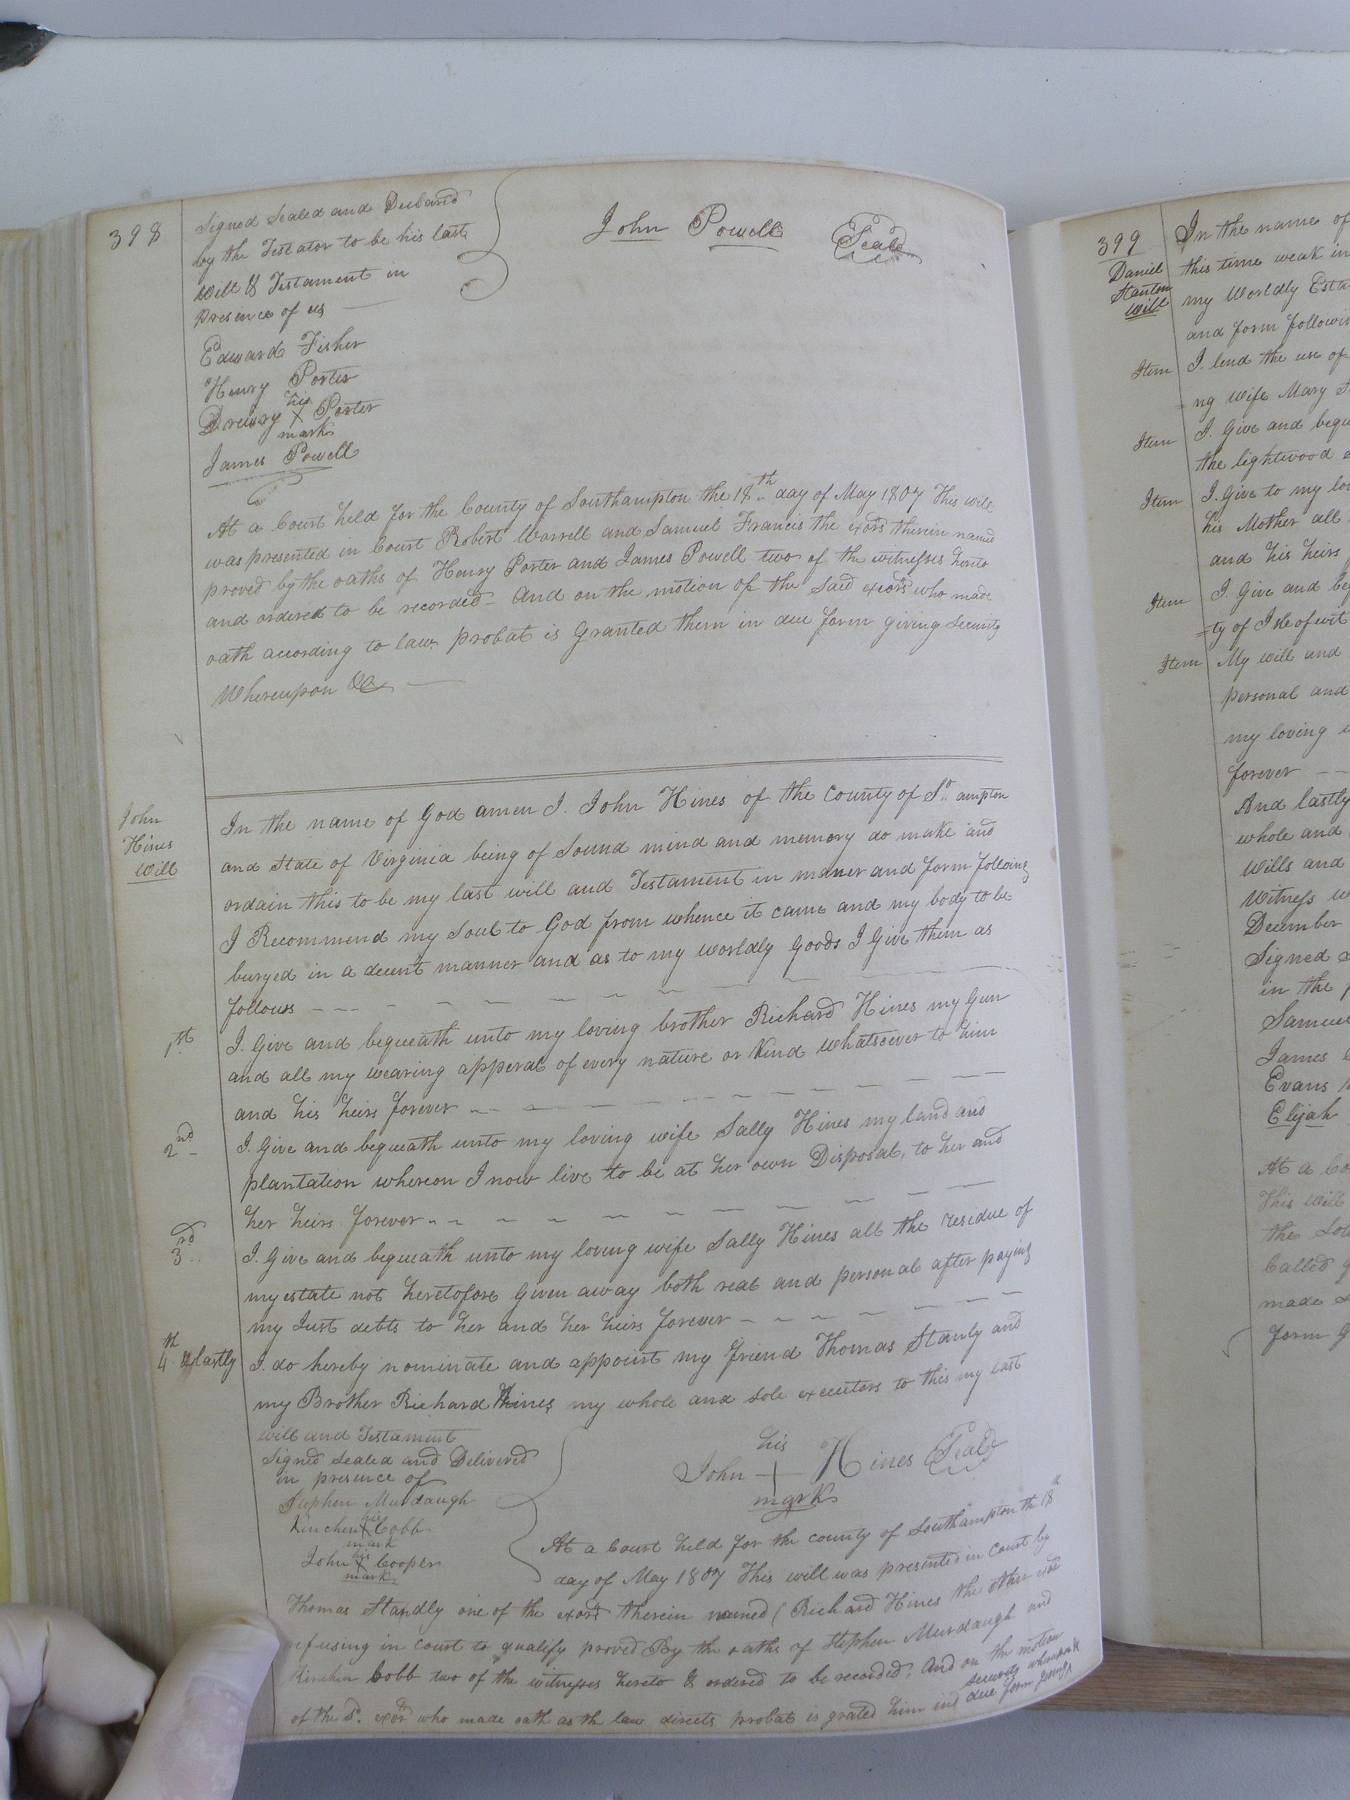 398
Signed Sealed and Declard
by the Testator to be his last
will & Testament in
presence of us
John Powell Seal
Edward Fisher
Henry Porter
his
Drewry X Porter
mark
James Powell
At a Court held for the County of Southampton the 18th day of May 1807 This will
was presented in Court Robert Worrell and Samuel Francis the exors therein named
proved by the oaths of Henry Porter and James Powell two of the witnesses hereto
and ordered to be recorded - And on the motion of the Said exors who made
oath according to law probat is Granted them in due form giving Security
Whereupon &c
John
Hines
Will
In the name of God amen I. John Hines of the County of So.ampton
and State of Virginia being of Sound mind and memory do make and
ordain this to be my last will and Testament in maner and form following
I Recommend my Soul to God from whence it came and my body to be
buryed in a decent manner and as to my worldly Goods I Give them as
follows
1st I. Give and bequeath unto my loving brother Richard Hines my Gun
and all my wearing apperal of every nature or Kind whatsoever to him
and his heirs forever
2nd I. Give and bequeath unto my loving wife Sally Hines my land and
plantation whereon I now live to be at her own Disposal, to her and
her heirs forever
3rd I. Give and bequeath unto my loving wife Sally Hines all the residue of
my estate not heretofore Given away both real and personal after paying
my Just debts to her and her heirs forever
4th & lastly I. do hereby nominate and appoint my friend Thomas Stanly and
my Brother Richard Hines my whole and sole executors to this my last
will and Testament
Signed Sealed and Delivered
in presence of
Stephen Murdaugh
his
Kinchen X Cobb
mark
his
John X Cooper
mark
his
John + Hines Seal
mark
At a Court held for the county of Southampton th 18th
day of May 1807 This will was presented in Court by
Thomas Standly one of the exors therein named (Richard Hines the other exor
refusing in Court to qualify proved By the oaths of Stephen Murdaugh and
Kinchen Cobb two of the witnesses hereto & ordered to be recorded, And on the motion
of the Sd. exor who made oath as th law directs probat is grated him in due form giving
security whereupon
399
Daniel
Stanton
Will
In the name of
this time weak in
my Worldly Esta
and form followin
Item I. lend the use of
ng wife Mary S
Item I. Give and beque
the lightwood
Item I. Give to my lo
his Mother all
and his heirs
Item I. Give and be
ty of Isle of wit
Item My will and
personal and
my loving
forever
And lastly
whole and
Wills and
Witness w
December
Signed
in the p
Samuel
James
Evans
Elijah
At a Co
This will
the
Called
made
form G